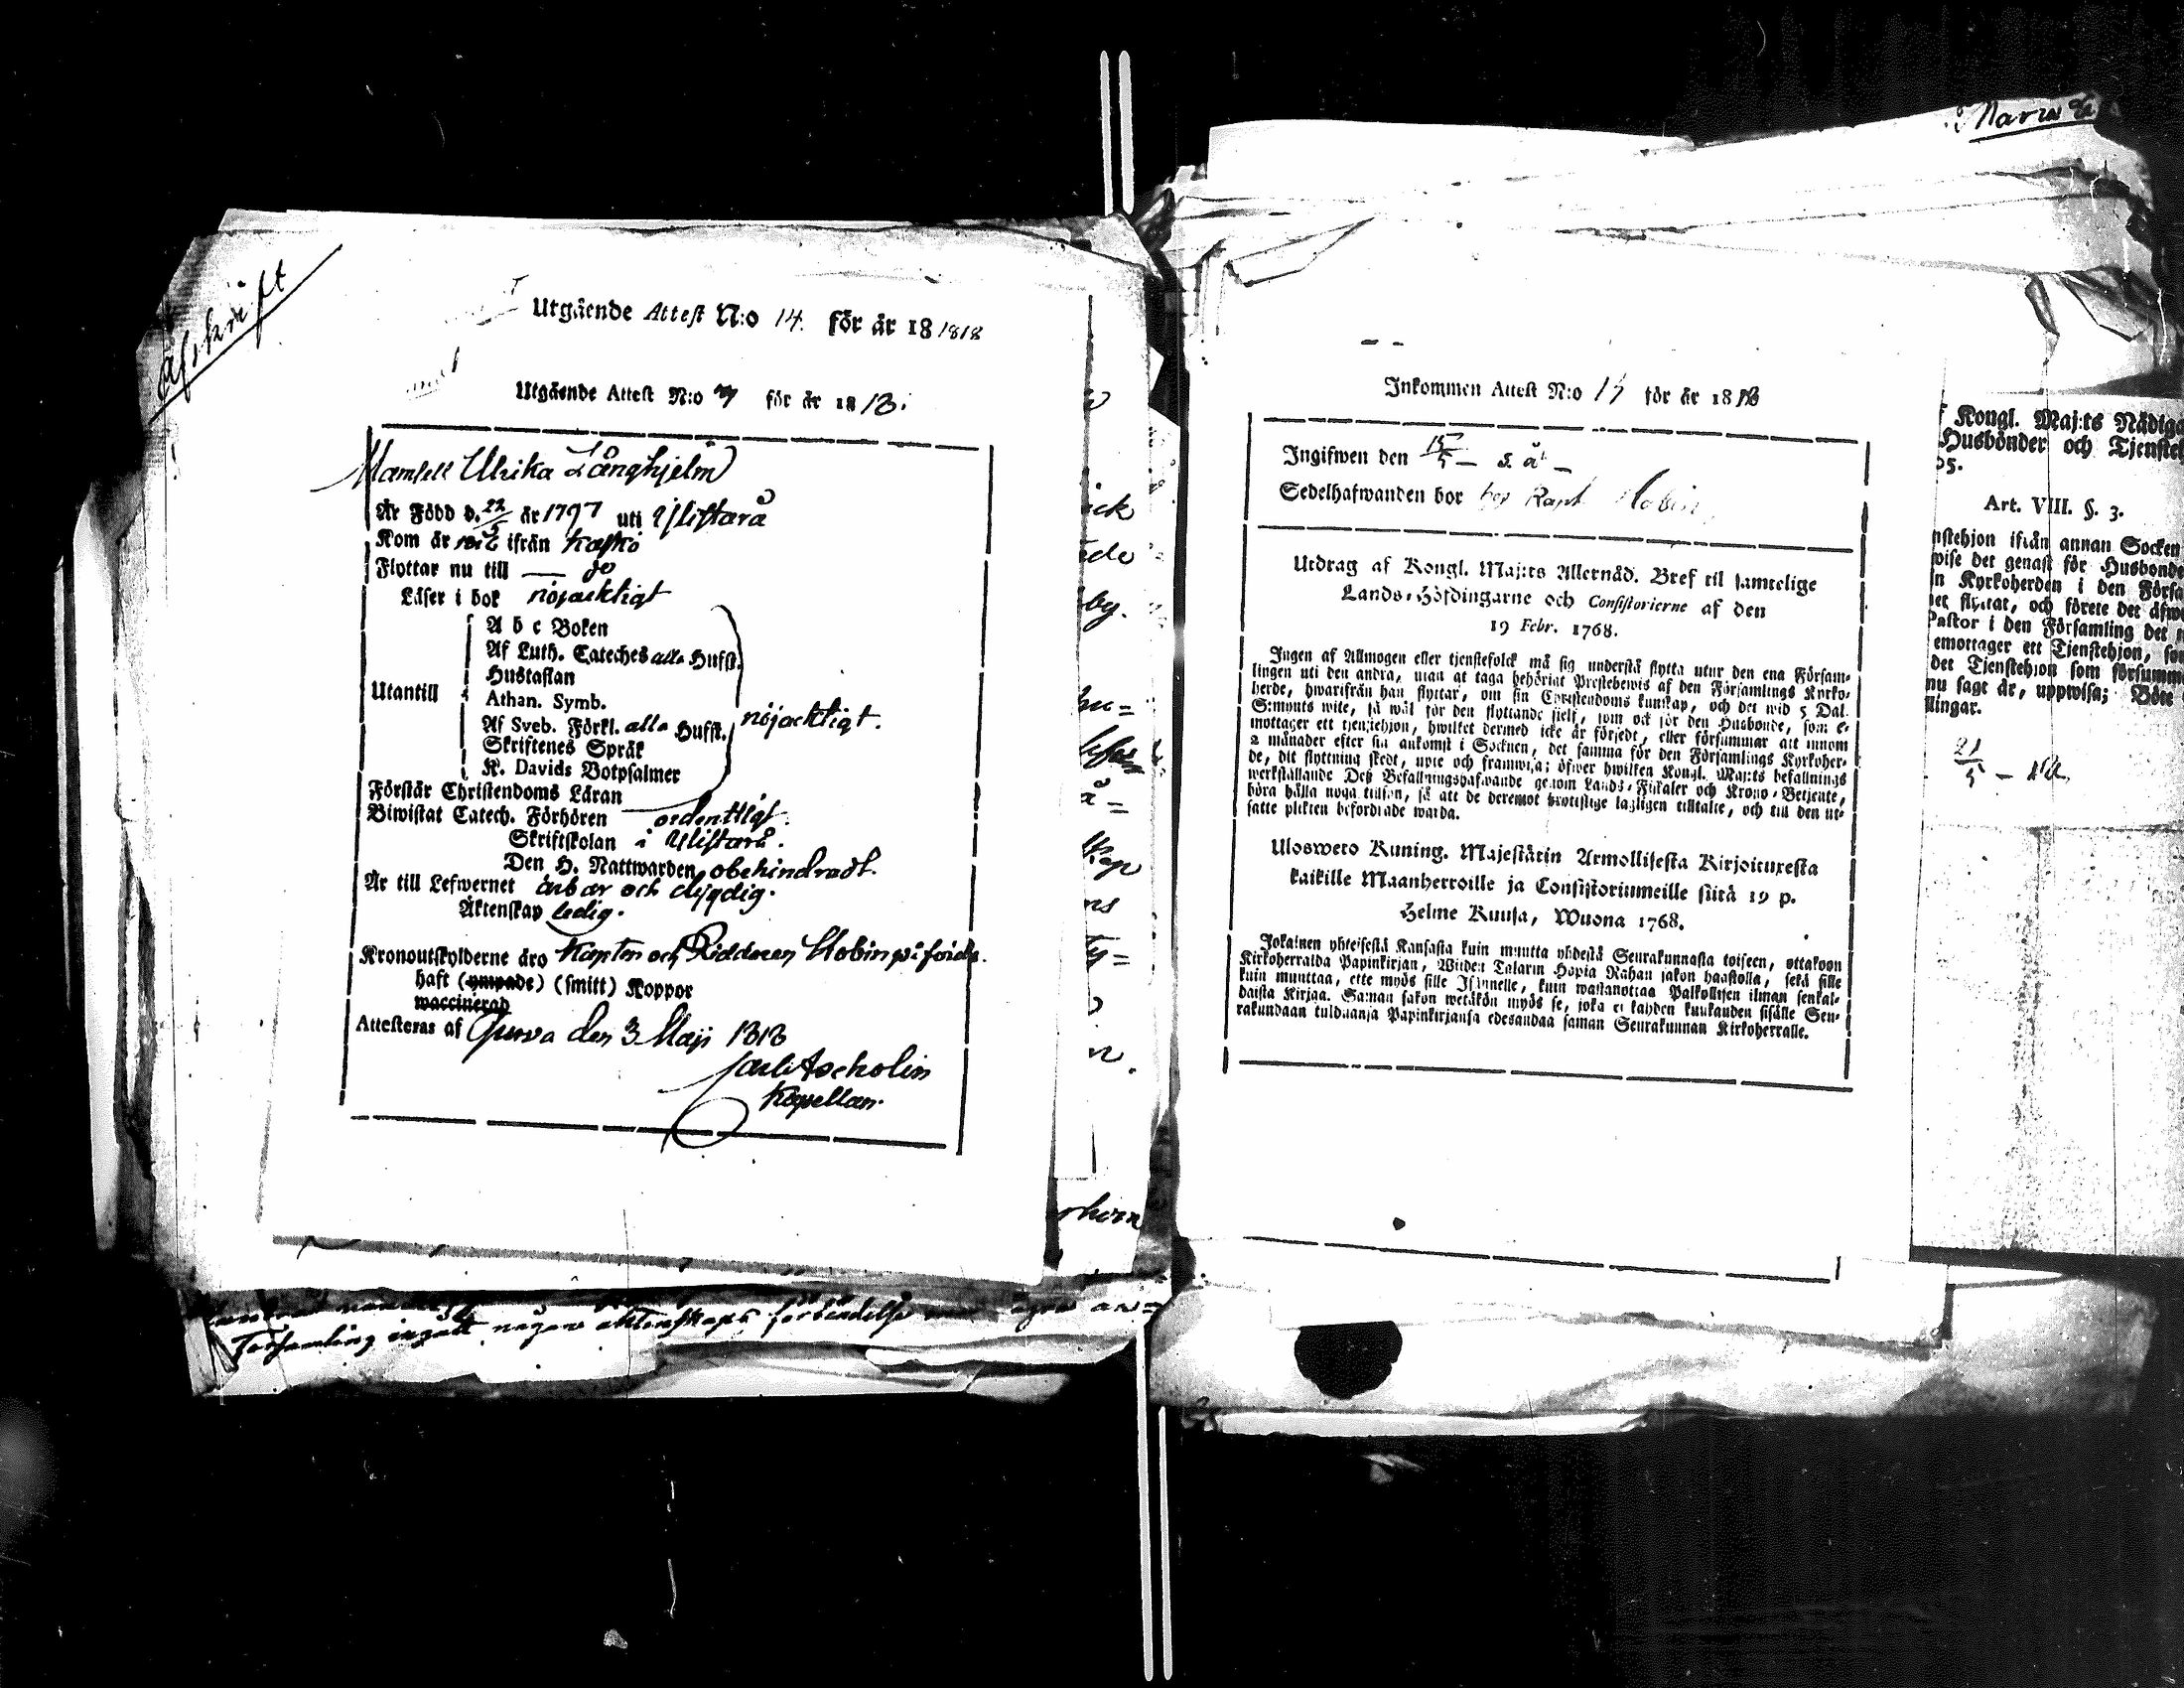 afskrift
Utgående Attest N:o 14. för år 18 1818
Utgående Attest N:o för år 18 18.
Mamsell Ulrika Långhjelm
Är Född d. 22/5 år 1797 uti Ylistaro
Kom år ifrån Kaskö
Flyttar nu till — do
Läser i bok nöjacktigt
A b c Boken
Af Luth. Cateches alla Hufst.
Hustaflan
Utantill
Athan. Symb.
Af Sveb. Förkl. alla Hufst. nöjacktigt.
Skriftenes Språk
K. Davids Botpsalmer
Förstår Christendoms Läran
Biwistat Catech. Förhören ordentligt.
Skriftskolan i Ylistaro.
Den H. Nattwarden obehindradt.
Är till Lefwernet ärbar och dygdig.
Äktenskap ledig.
Kronoutskylderne äro Kapten och Riddaren
haft (ympade) (smitt) Koppor
waccinerad
Attesteras af Jurva den 3 Maji 1818
Carl Ascholin
Kapellan.
Församling ingått några äktenskaps förbindelse
Maria
Inkommen Attest N:o för år 18 18
Ingifwen den 15/5 — s. å. —
Sedelhafwanden bor hos Kapt
Utdrag af Kongl. Maj:ts Allernåd. Bref til samtelige
Lands-Höfdingarne och Consistorierne af den
19 Febr. 1768.
Ingen af Allmogen eller tjenstefolck må sig understå flytta utur den ena Försam-
lingen uti den andra, utan at taga behörigt Prestebewis af den Församlings Kyrko-
herde, hwarifrån han flyttar, om sin Christendoms kunskap, och det wid 5 Dal.
S:mynts wite, så wäl för den flyttande sielf, som ock för den Husbonde, som e-
mottager ett tjenstehjon, hwilket dermed icke är försedt, eller försummar att innom
2 månader efter sin ankomst i Socknen, det samma för den Församlings Kyrkoher-
de, dit flyttning skedt, upte och framwisa; öfwer hwilken Kongl. Maj:ts befallnings
werkställande Deß Befallningshafwande genom Lands-Fiskaler och Krono-Betjente,
böra hålla noga tillsyn, så att de deremot brottslige lagligen tilltalte, och till den ut-
satte plikten befordrade warda.
Ulosweto Kuning. Majestätin Armollisesta Kirjoituxesta
kaikille Maanherroille ja Consistoriumeille siitä 19 p.
Helme Kuusa, Wuona 1768.
Jokainen yhteisestä Kansasta kuin muutta yhdestä Seurakunnasta toiseen, ottakoon
Kirkoherralda Papinkirjan, Wiiden Talarin Hopia Rahan sakon haastolla, sekä sille
kuin muuttaa, ette myös sille Isännelle, kuin wastanottaa Palkollisen ilman senkal-
daista Kirjaa. Saman sakon wetäkön myös se, joka ei kahden kuukauden sisälle Seu-
rakundaan tulduansa Papinkirjansa edesandaa saman Seurakunnan Kirkoherralle.
Kongl. Maj:ts Nådiga
Husbönder och Tjenste
05.
Art. VIII. §. 3.
nstehjon ifrån annan Socken
wise det genast för Husbonde
Kyrkoherden i den Försa
flyttat, och förete det äfwe
Pastor i den Församling det
emottager ett Tjenstehjon, som
det Tjenstehjon som försumm
nu sagt är, uppwisa; Böte
llingar.
21/5 —